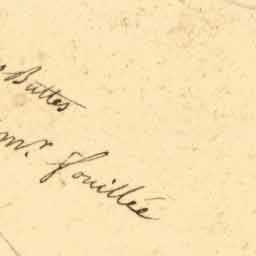 Buttes
mr. fouillée